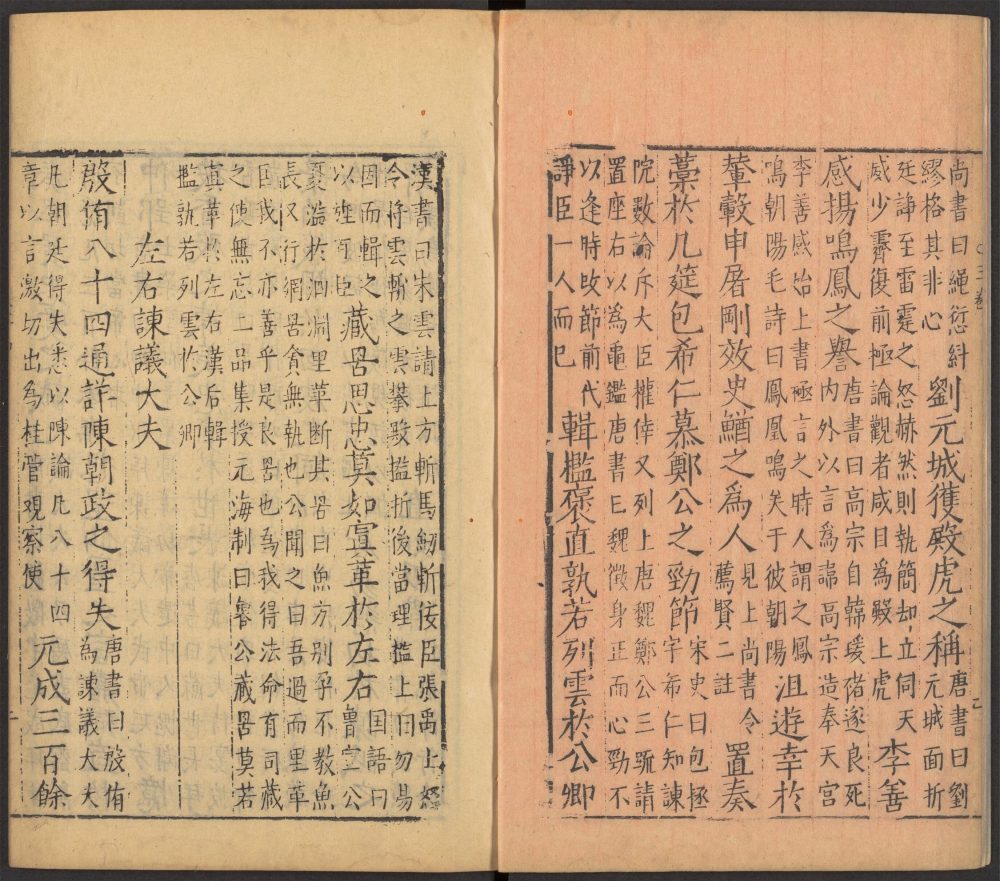 尚書曰繩愆糾
繆格其非心
劉元城獲殿虎之稱
唐書曰劉
元城面折
廷諍至雷霆之怒赫然則執簡却立伺天
威少霽復前極論觀者咸目為殿上虎
李善
感揚鳴鳳之譽
唐書曰高宗自韓瑗褚遂良死
內外以言為諱高宗造奉天宮
李善感始上書極言之時人謂之鳳
鳴朝陽毛詩曰鳳凰鳴矣于彼朝陽
沮遊幸於
輦轂申屠剛效史鰌之為人
見上尚書令
薦賢二註
置奏
藁於几筵包希仁慕鄭公之勁節
宋史曰包拯
字希仁知諫
院數論斥大臣權倖又列上唐魏鄭公三疏請
置座右以為龜鑑唐書曰魏徵身正而心勁不
以逢時改節前代
諍臣一人而已
輯檻褒直孰若列雲於公卿
漢書曰朱雲請上方斬馬劒斬佞臣張禹上怒
令將雲斬之雲攀殿檻折後當理檻上曰勿易
因而輯之
以旌直臣
藏罟思忠莫如寘革於左右
国語曰
魯宣公
夏濫於泗淵里革断其罟曰魚方别孕不教魚
長又行網罟貪無執也公聞之曰吾過而里革
匡我不亦善乎是良罟也為我得法命有司藏
之使無忘工品集授元海制曰魯公藏罟莫若
寘革於左右漢后輯
檻孰若列雲於公卿
左右諫議大夫
殷侑八十四通詐陳朝政之得失
唐書曰殷侑
為諫議大夫
凡朝廷得失悉以陳論凡八十四
章以言激切出為桂管觀察使
元成三百餘